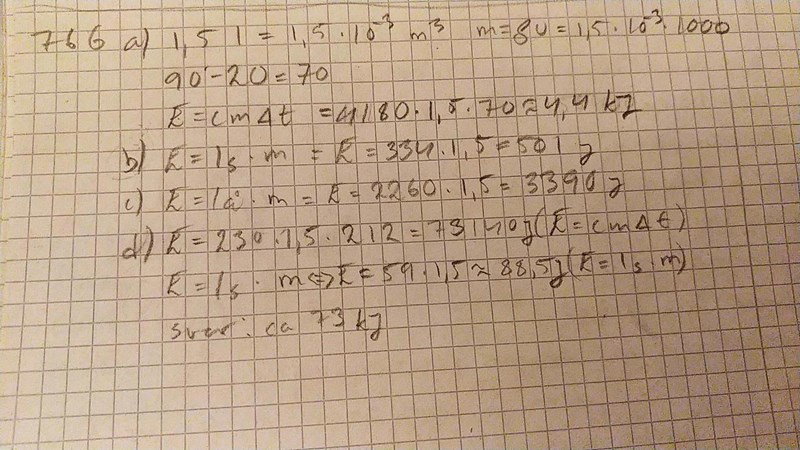 766 a) 1,5 l = 1,5 · 10⁻³ m³ m=ρv=1,5 · 10⁻³ · 1000
90-20=70
E=cmΔt =4180·1,5·70≈4,4 kJ
b) E=ls · m = E=334·1,5=501 J
c) E=lå · m = E=2260·1,5=3390 J
d) E=230·1,5·212=73140 J (E=cmΔt)
E=ls · m⇔E=59·1,5≈88,5 J (E=ls·m)
svar: ca 73 kJ